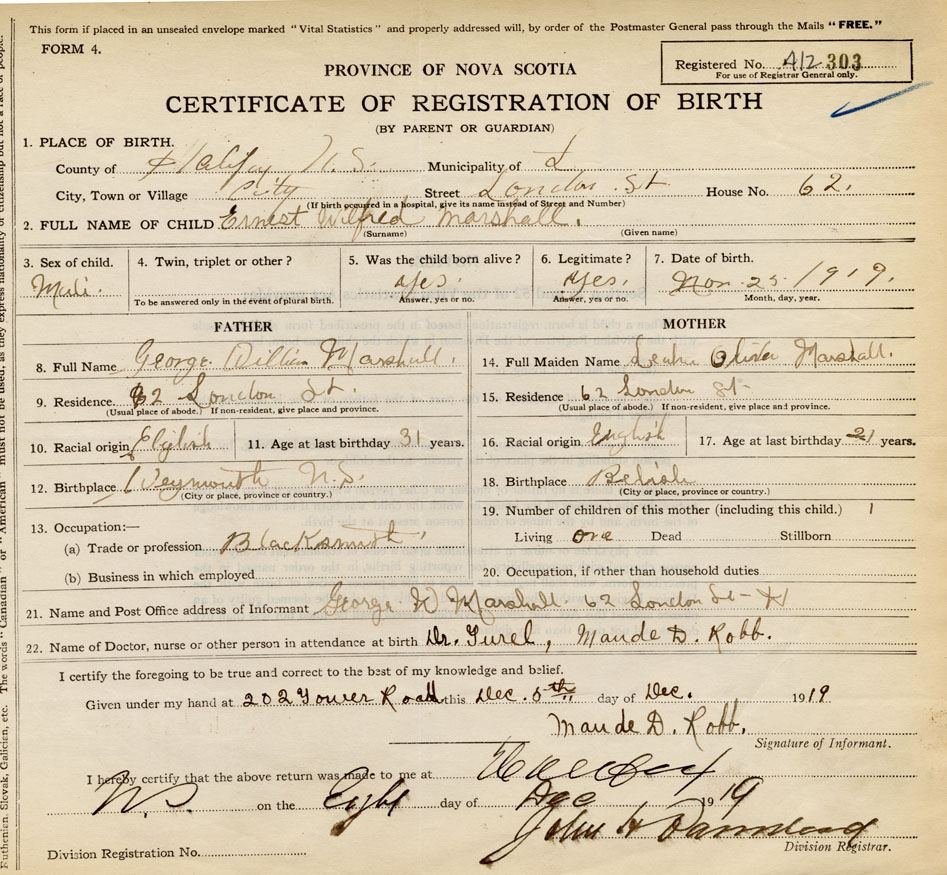 This form if placed in an unsealed envelope marked "Vital Statistics" and properly addressed will, by order of the Postmaster General pass through the Mails "FREE."
FORM 4.
Registered No. 412 303
For use of Registrar General only.
PROVINCE OF NOVA SCOTIA
CERTIFICATE OF REGISTRATION OF BIRTH
(BY PARENT OR GUARDIAN)
1. PLACE OF BIRTH.
County of Halifax N.S. Municipality of
City, Town or Village City Street London St House No. 62.
(If birth occurred in a hospital, give its name instead of Street and Number)
2. FULL NAME OF CHILD Ernest Wilfred Marshall.
(Surname) (Given name)
3. Sex of child. 4. Twin, triplet or other? 5. Was the child born alive? 6. Legitimate? 7. Date of birth.
yes. yes. Nov. 25 / 1919.
To be answered only in the event of plural birth. Answer, yes or no. Answer, yes or no. Month, day, year.
FATHER MOTHER
8. Full Name George Marshall. 14. Full Maiden Name Marshall.
9. Residence. 62 London St. 15. Residence 62 London St
(Usual place of abode.) If non-resident, give place and province. (Usual place of abode.) If non-resident, give place and province.
10. Racial origin English 11. Age at last birthday 31 years. 16. Racial origin English 17. Age at last birthday 21 years.
12. Birthplace Weymouth N.S. 18. Birthplace
(City or place, province or country.) (City or place, province or country.)
13. Occupation:— 19. Number of children of this mother (including this child.) 1
(a) Trade or profession Blacksmith. Living one Dead Stillborn
(b) Business in which employed 20. Occupation, if other than household duties
21. Name and Post Office address of Informant George W Marshall 62 London St - H
22. Name of Doctor, nurse or other person in attendance at birth Dr. Maude D. Robb.
I certify the foregoing to be true and correct to the best of my knowledge and belief.
Given under my hand at 202 Tower Road this Dec. 5th day of Dec. 1919
Maude D. Robb.
Signature of Informant.
I hereby certify that the above return was made to me at Halifax
N.S. on the day of Dec 1919
John H
Division Registrar.
Division Registration No.
Ruthenian, Slovak, Galician, etc. The words "Canadian" or "American" must not be used, as they express nationality or citizenship but not a race of people.